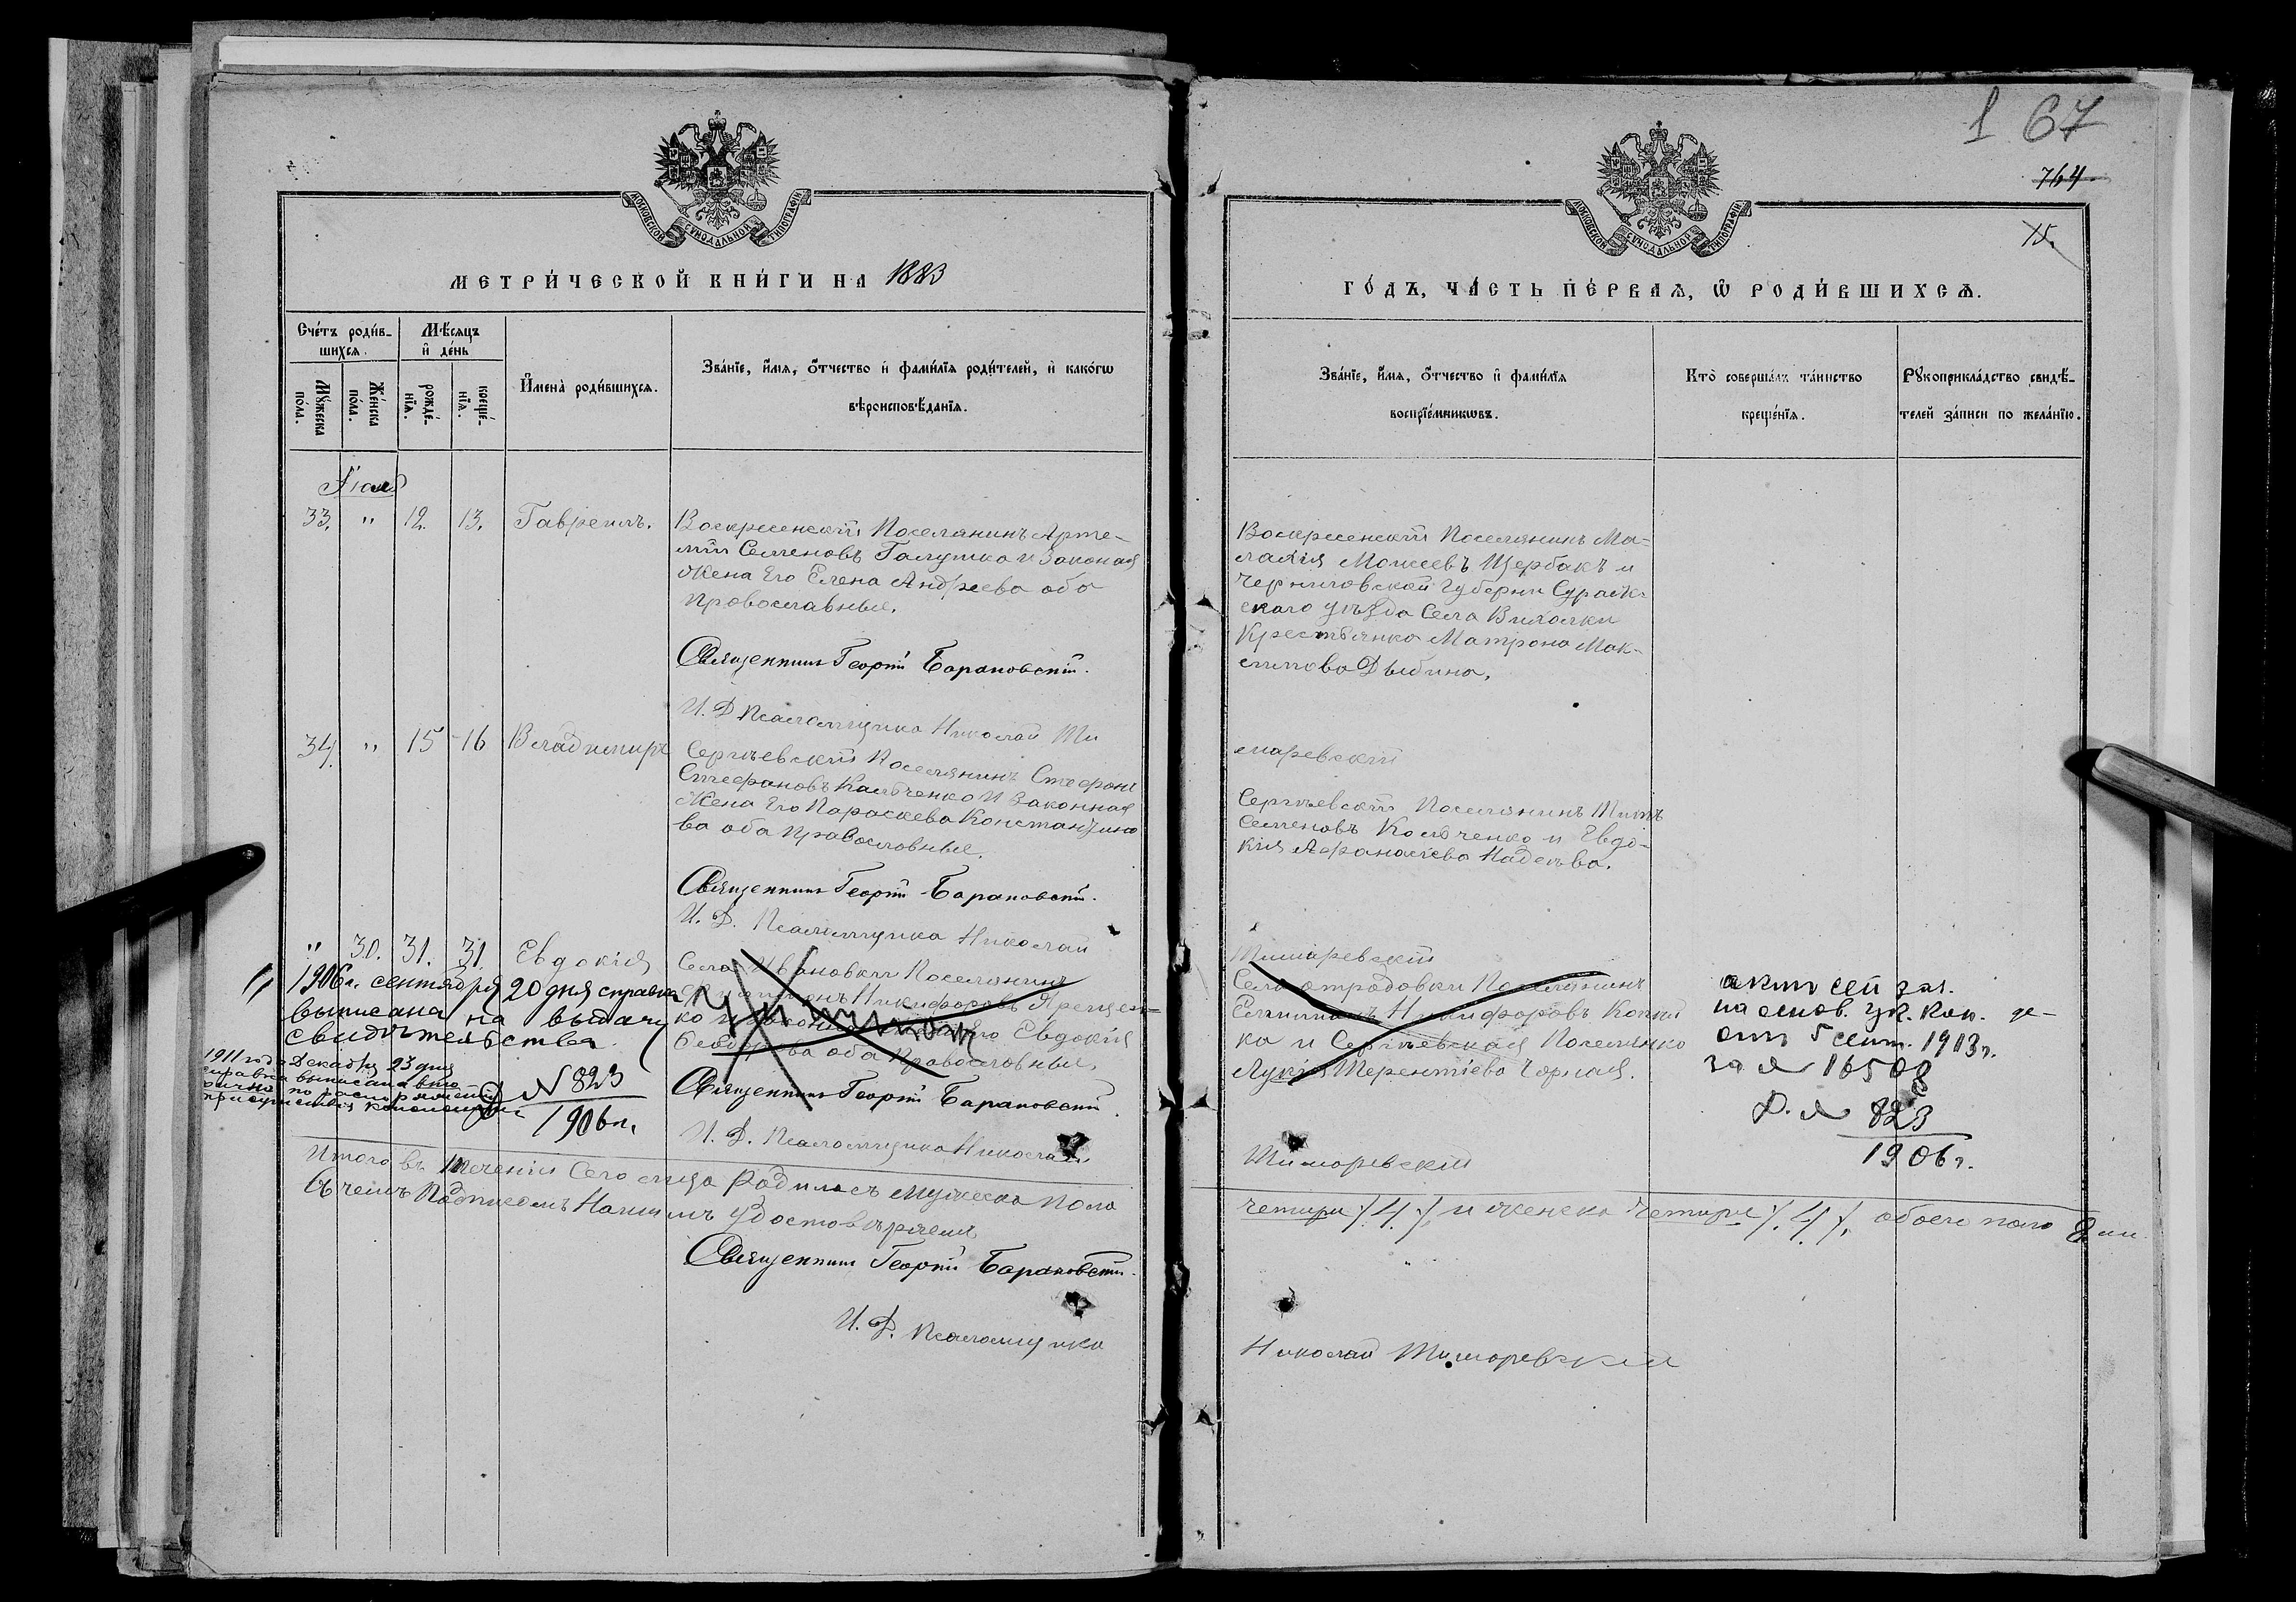 1 67
764
15.
МОСКОВСКОЙ СѴНОДАЛЬНОЙ ТИПОГРАФІИ
МЕТРИ́ЧЕСКОЙ КНИ́ГИ НА 1883
Сче́тъ роди́в-
шихся.
Мѣ́сяцъ
и҆ де́нь
Мꙋ́жеска
по́ла.
Же́нска
по́ла.
рожде́-
нїѧ.
креще́-
нїѧ.
И҆мена̀ роди́вшихсѧ.
Зва́нїе, и҆́мѧ, ѻ҆́тчество и҆ фами́лїѧ роди́телей, и҆ како́гѡ
вѣроисповѣ́данїѧ.
Іюль
33. " 12. 13. Гавріилъ.
Воскресенскій Поселянинъ Арте-
мій Семеновъ Галушка и Законая
Жена Его Елена Андреева оба
Провославные.
Священникъ Георгій Барановскій.
И. Д. Псаломщика Николай Ти
34. " 15 16 Владимиръ
Сергѣевскій Поселянинъ Стефанъ
Стефановъ Калюченко И Законная
Жена Его Параскева Константино
ва оба Православные.
Священникъ Георгій Барановскій.
И. Д. Псаломщика Николай
" 30. 31. 31. Евдокія
Села Ивановки Поселянинъ
Никифоровъ
Его Евдокія
оба Православные.
Священникъ Георгій Барановскій.
И. Д. Псаломщика Николай
1906 г. сентября 20 дня справка
выписана на выдачу
свидѣтельства.
1911 года Декабря 23 дня
справка выписана вто
рично по распоряженію
присутствія
N 823
1906 г.
Итого въ теченіи Сего м-ца Родилось мужеска Пола
Въ чемъ Подписомъ Нашимъ Удостовѣряемъ
Священникъ Георгій Барановскій.
И. Д. Псаломщика
МОСКОВСКОЙ СѴНОДАЛЬНОЙ ТИПОГРАФІИ
ГО́ДЪ, ЧА́СТЬ ПЕ́РВАѦ, Ѡ҆ РОДИ́ВШИХСѦ.
Зва́нїе, и҆́мѧ, ѻ҆́тчество и҆ фами́лїѧ
воспрїе́мникѡвъ.
Кто̀ соверша́лъ та́инство
креще́нїѧ.
Рꙋкоприкла́дство свидѣ́-
телей за́писи по жела́нїю.
Воскресенскій Поселянинъ Ма-
лахія Моисеевъ Щербакъ и
Черниговской Губерни Сураж-
скаго уѣзда Села
Крестьянка Матрона Мак-
симова
маревскій
Сергѣевскій Поселянинъ Титъ
Семеновъ Калюченко и Евдо-
кія Афанасіева
Тимаревскій
Села отрадовки Поселянинъ
Никифоровъ
ка и Сергѣевская Поселянко
Лукія Терентіева Чорная.
Тимаревскій
актъ сей
на основ. ук. Кон.
отъ 5 сент. 1913 г.
за N 16508
Д. N 823
1906 г.
четыри /.4./ и женска четыри /.4./. обоего пола 8
Николай Тимаревскій